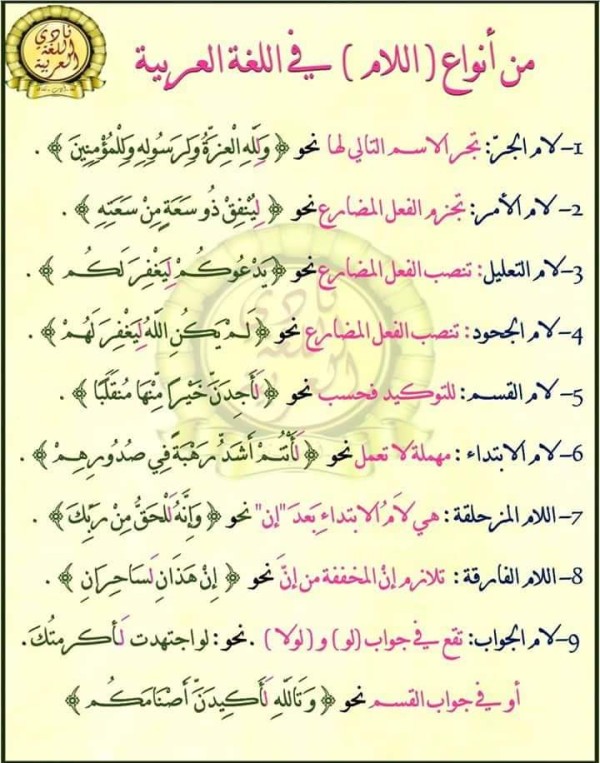 نادي
اللغة
العربية
من أنواع ( اللام ) في اللغة العربية
1- لام الجرّ: تجر الاسم التالي لها نحو ﴿ وَلِلَّهِ الْعِزَّةُ وَلِرَسُولِهِ وَلِلْمُؤْمِنِينَ ﴾ .
2- لام الأمر: تجزم الفعل المضارع نحو ﴿ لِيُنْفِقْ ذُو سَعَةٍ مِنْ سَعَتِهِ ﴾ .
3- لام التعليل: تنصب الفعل المضارع نحو ﴿ يَدْعُوكُمْ لِيَغْفِرَ لَكُم ﴾ .
4- لام الجحود: تنصب الفعل المضارع نحو ﴿ لَمْ يَكُنِ اللَّهُ لِيَغْفِرَ لَهُمْ ﴾ .
5- لام القسم: للتوكيد فحسب نحو ﴿ لَأَجِدَنَّ خَيْرًا مِّنْهَا مُنقَلَبًا ﴾ .
6- لام الابتداء : مهملة لا تعمل نحو ﴿ لَأَنْتُمْ أَشَدُّ رَهْبَةً فِي صُدُورِهِمْ ﴾ .
7- اللام المزحلقة : هي لاَمُ الابتداءِ بَعدَ "إن" نحو ﴿ وَإِنَّهُ لَلْحَقُّ مِنْ رَبِّكَ ﴾ .
8- اللام الفارقة : تلازم إنْ المخففة من إنّ نحو ﴿ إِنْ هَذَانِ لَسَاحِرَانِ ﴾ .
9- لام الجواب: تقع في جواب (لو) و (لولا) . نحو: لو اجتهدت لَأكرمتُكَ.
أو في جواب القسم نحو ﴿ وَتَاللَّهِ لَأَكِيدَنَّ أَصْنَامَكُم ﴾